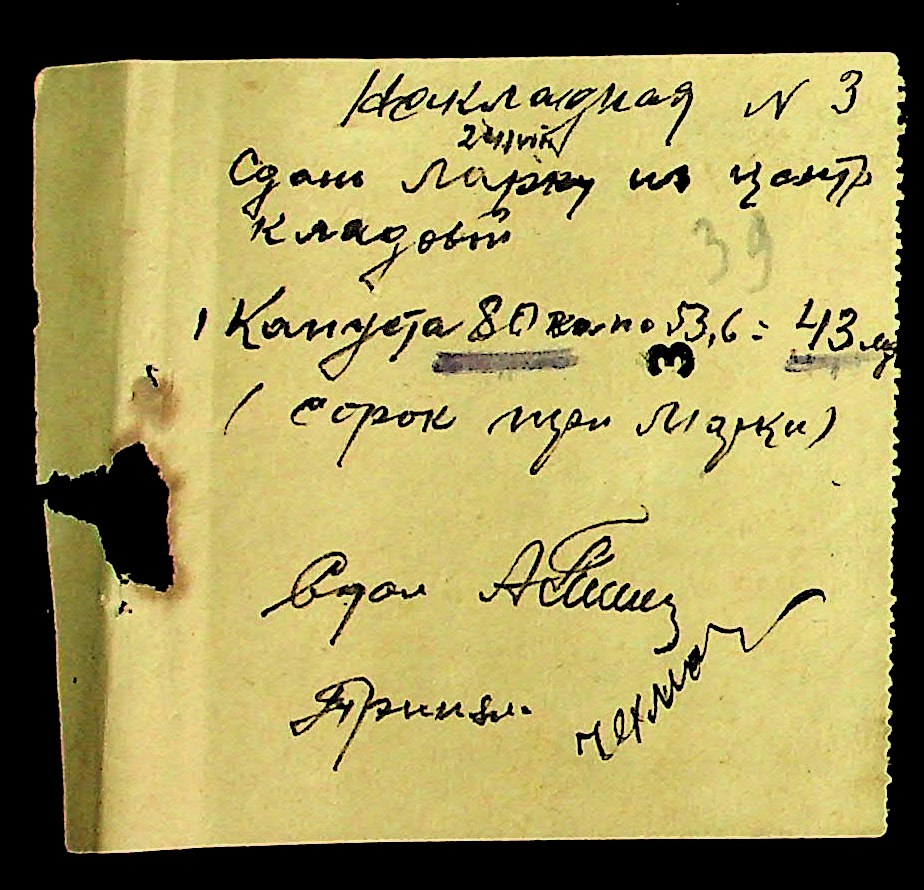 Накладная N 3
24/VIII
Сдано Ларку из центр
кладовой
39
1 Капуста 80 кг по 53,6 = 43 м
3
(Сорок три Марки)
Сдал
Принял